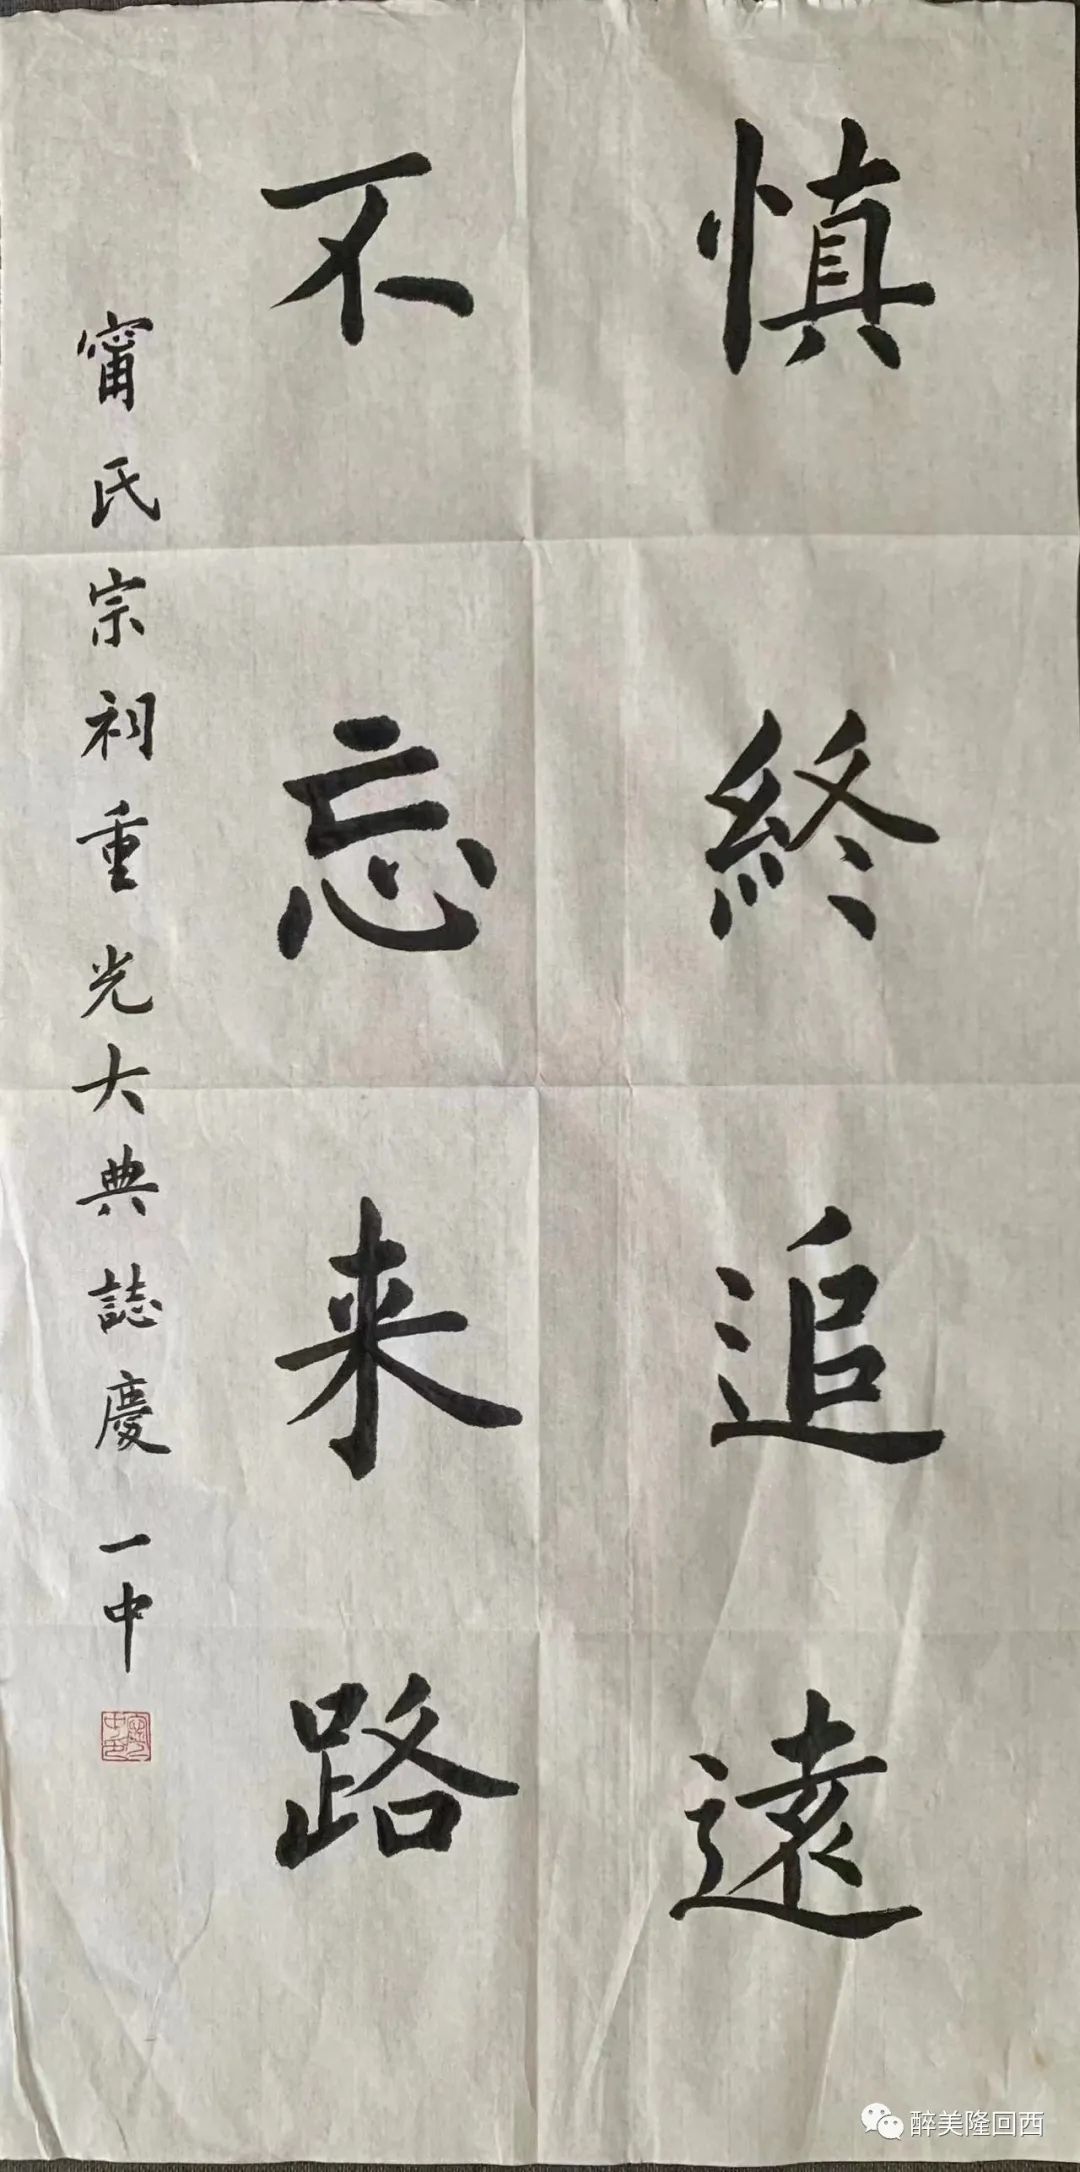 慎終追遠
不忘来路
甯氏宗祠重光大典誌慶 一中
醉美隆回西